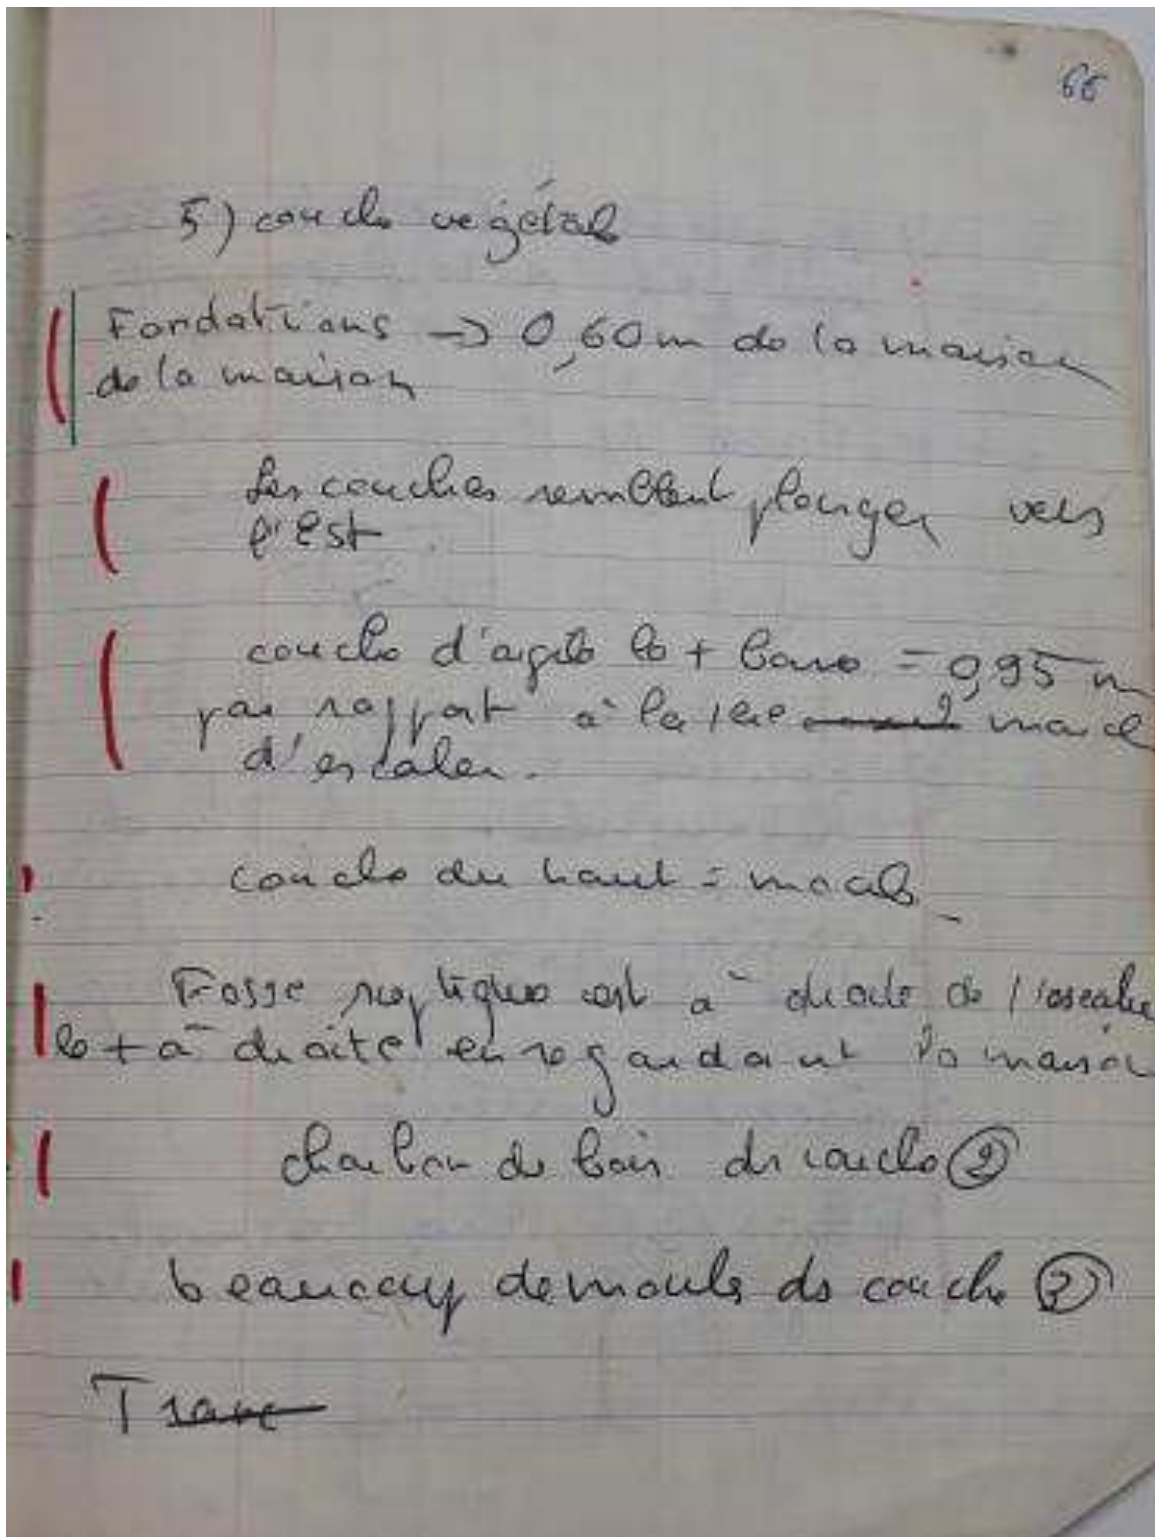 66
5) couche végétale
Fondations → 0,60m de la maison
de la maison
Les couches semblent plonger vers
l'Est
couche d'argile la + basse = 0,95 m
par rapport à la 1ère marche
d'escalier.
couche du haut =
Fosse septique est à droite de l'escalier
le + à droite en regardant la maison
charbon de bois ds couche ②
beaucoup de moules ds couche ②